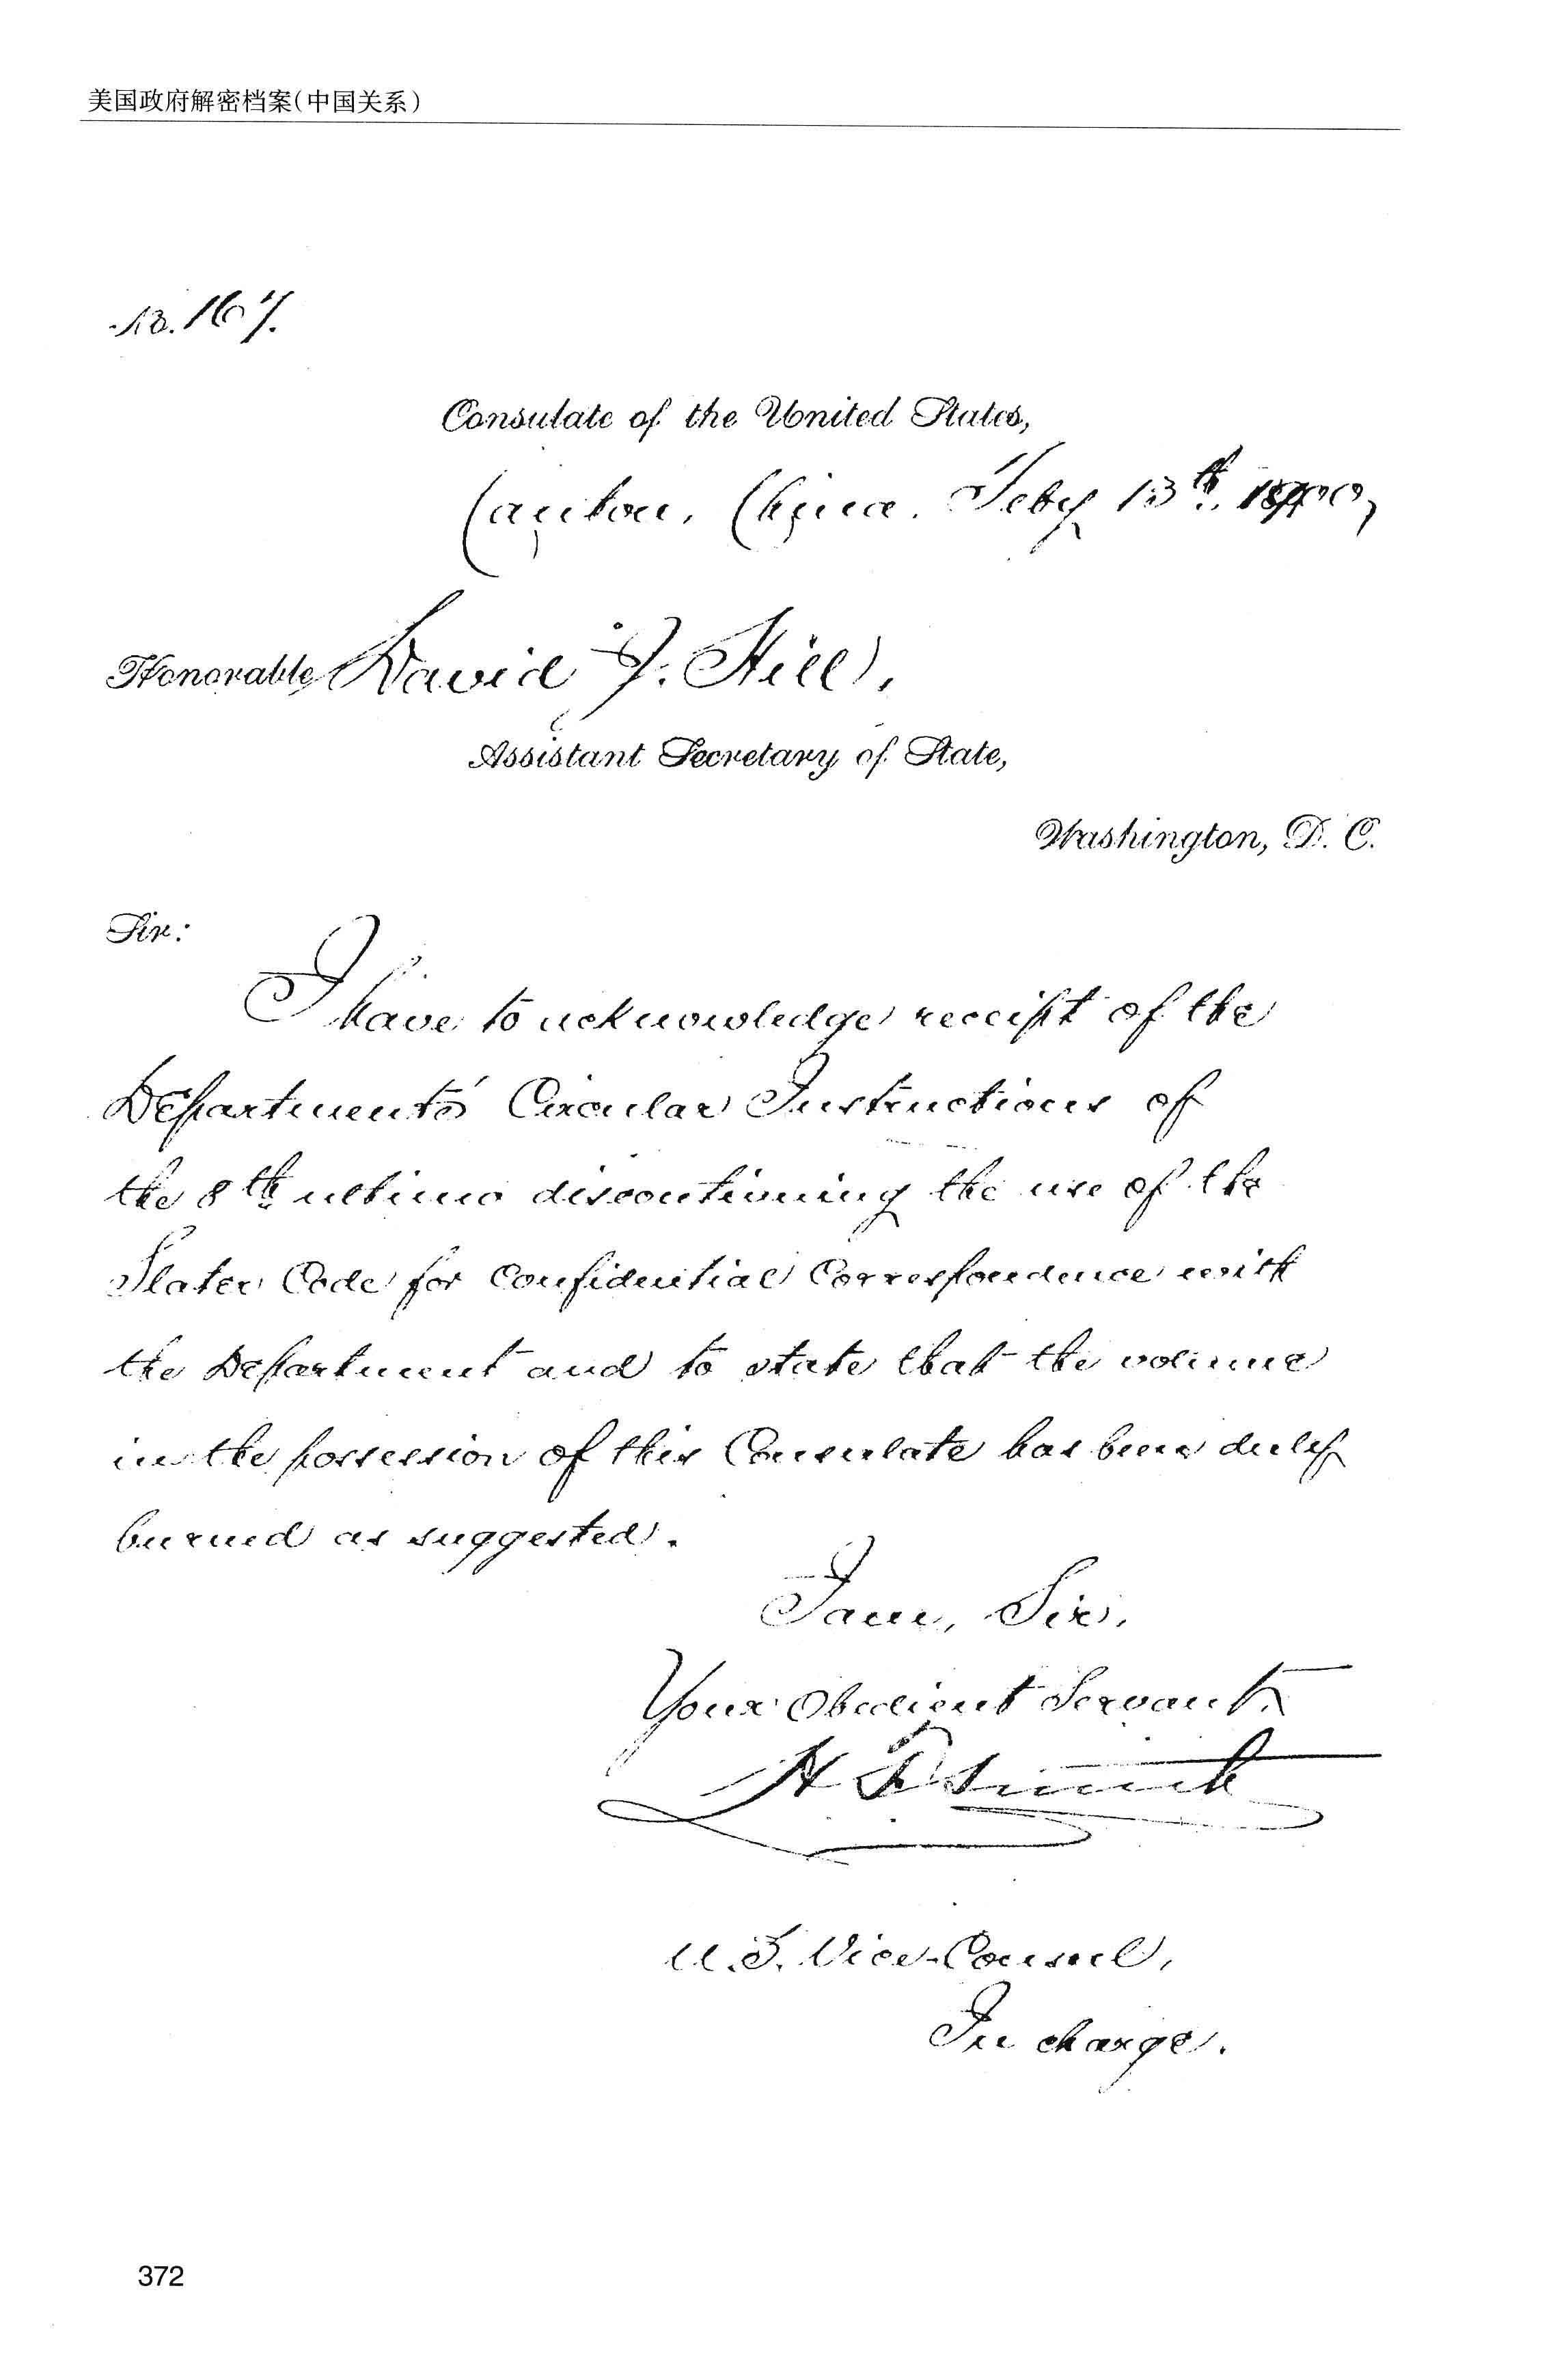 美国政府解密档案(中国关系)
No. 167.
Consulate of the United States,
Canton, China. Feby 13th, 1900,
Honorable David J. Hill,
Assistant Secretary of State,
Washington, D. C.
Sir:
I have to acknowledge receipt of the
Department's Circular Instructions of
the 8th ultimo discontinuing the use of the
Slater Code for Confidential Correspondence with
the Department and to state that the volume
in the possession of this Consulate has been duly
burned as suggested.
I am, Sir,
Your Obedient Servant,
U.S. Vice-Consul,
In charge.
372